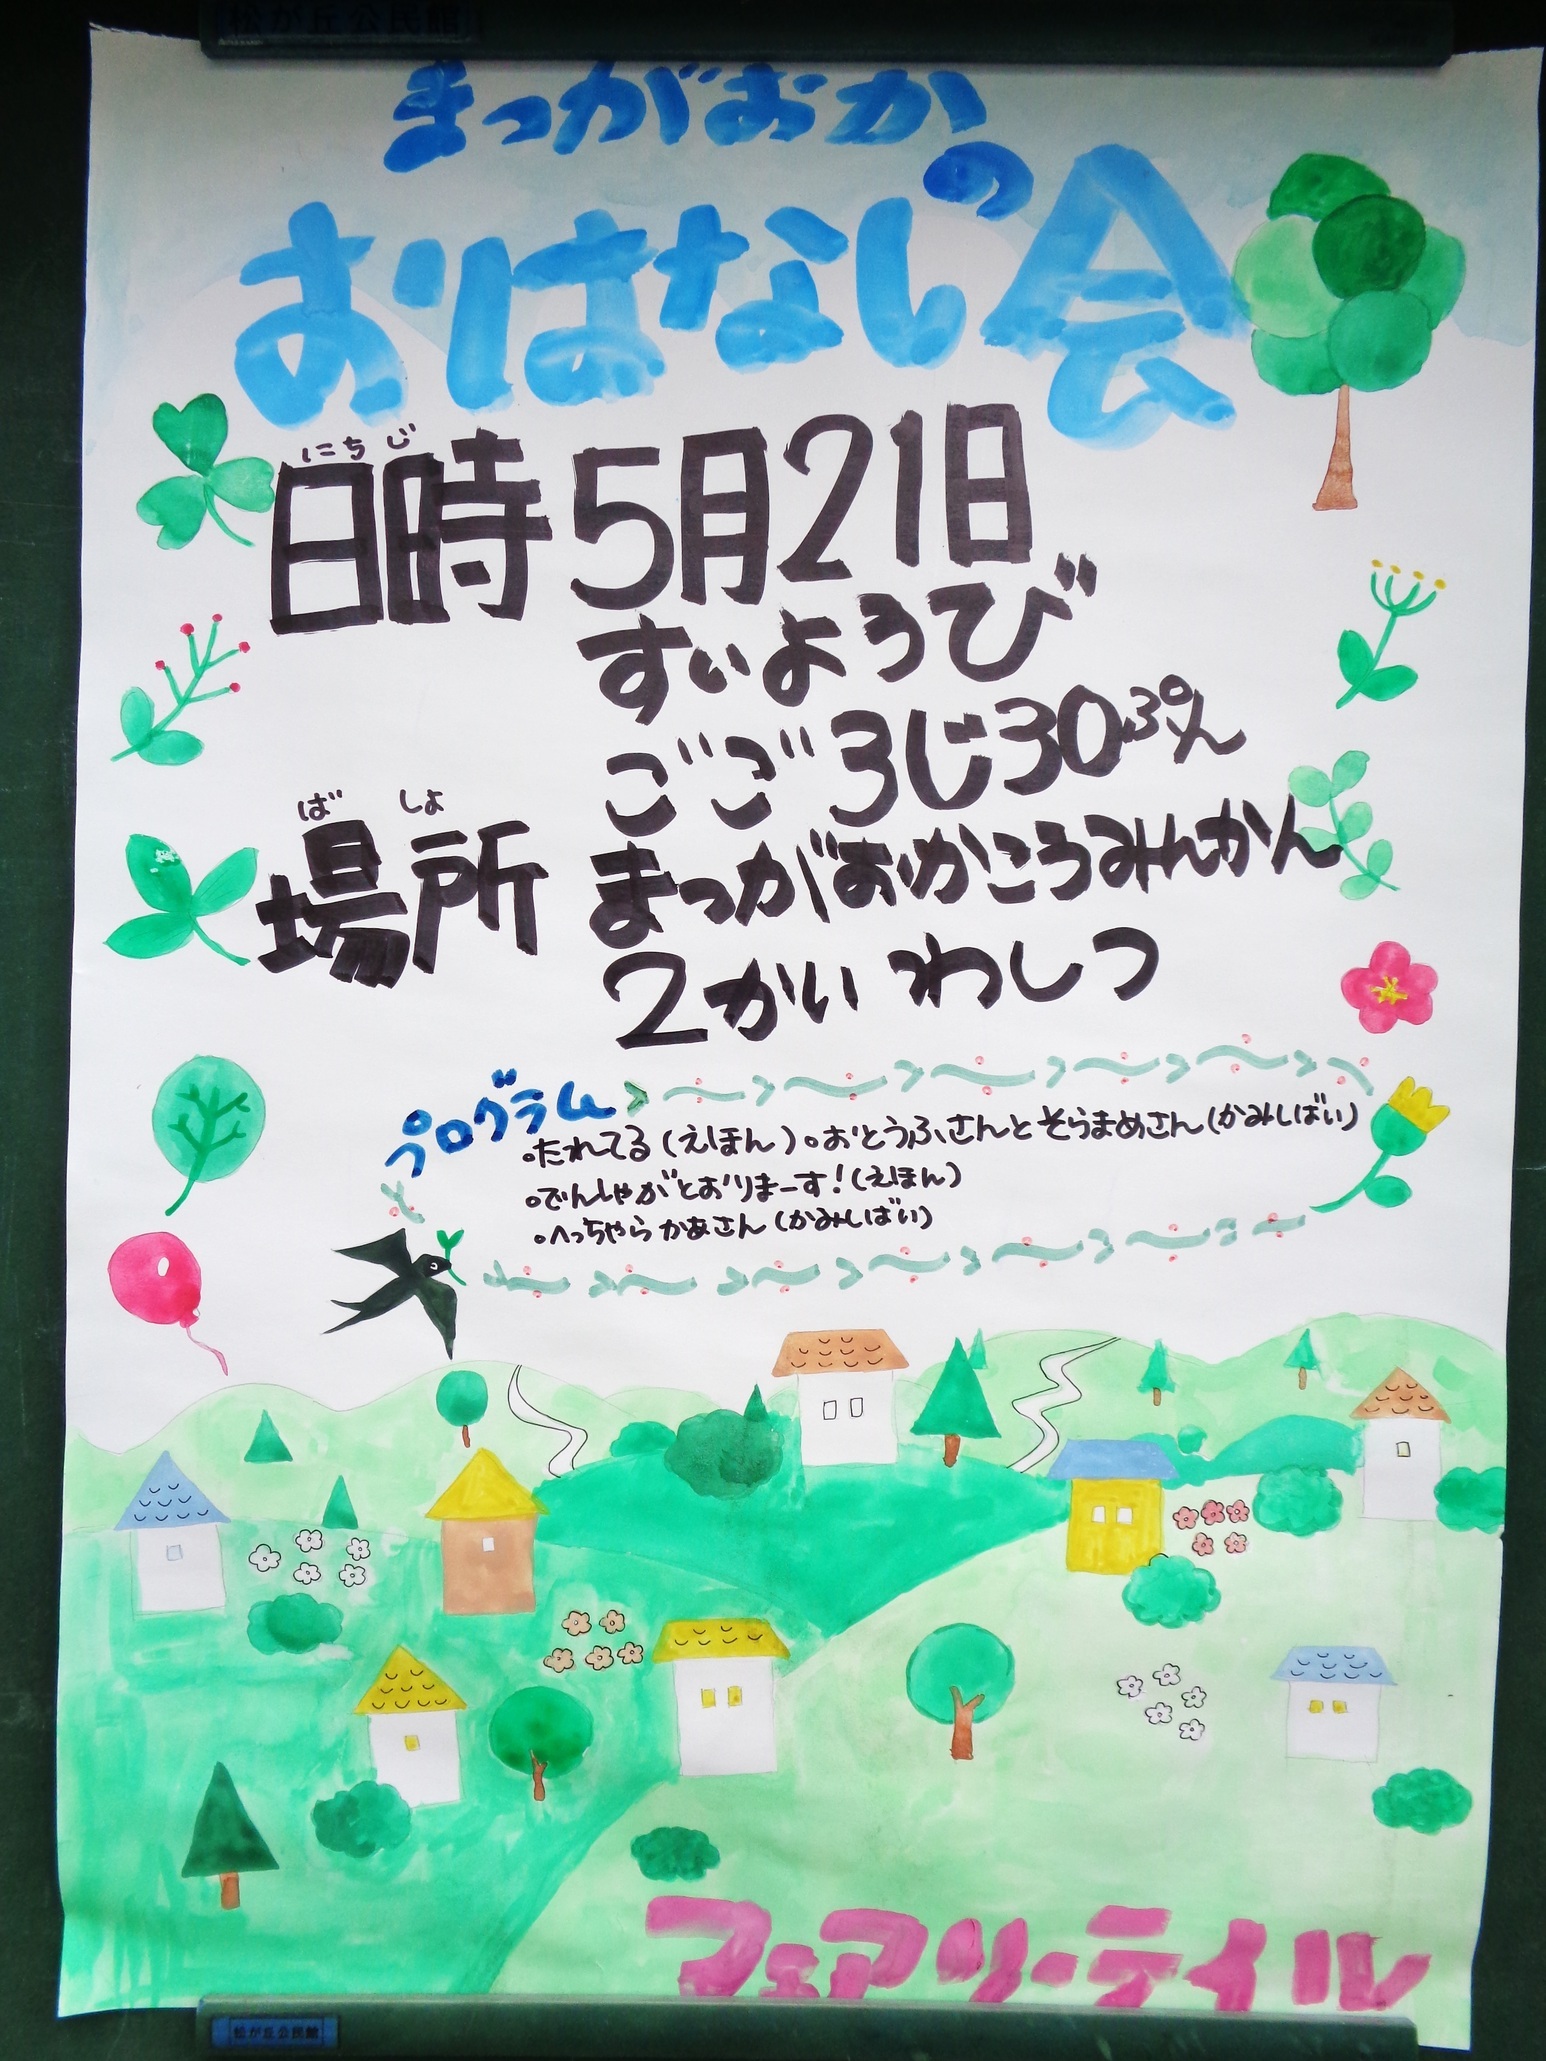 松が丘公民館
まつがおかの
おはなし会
にちじ
日時 5月21日
すいようび
ごご3じ30ぷん
ばしょ
場所 まつがおかこうみんかん
2かい わしつ
プログラム
•たれてる(えほん)•おとうふさんとそらまめさん(かみしばい)
•でんしゃがとおりまーす!(えほん)
•へっちゃらかあさん(かみしばい)
フェアリーテイル
松が丘公民館